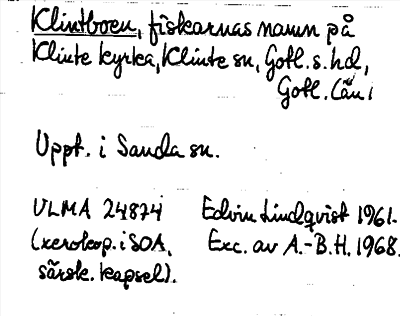 Klintboen, fiskarnas namn på
Klinte kyrka, Klinte sn, Gotl. s. hd,
Gotl. län.
Uppt. i Sanda sn.
ULMA 24874 Edvin Lindqvist 1961.
(xerokop. i SOA, Exc. av A.-B.H. 1968.
särsk. kapsel).